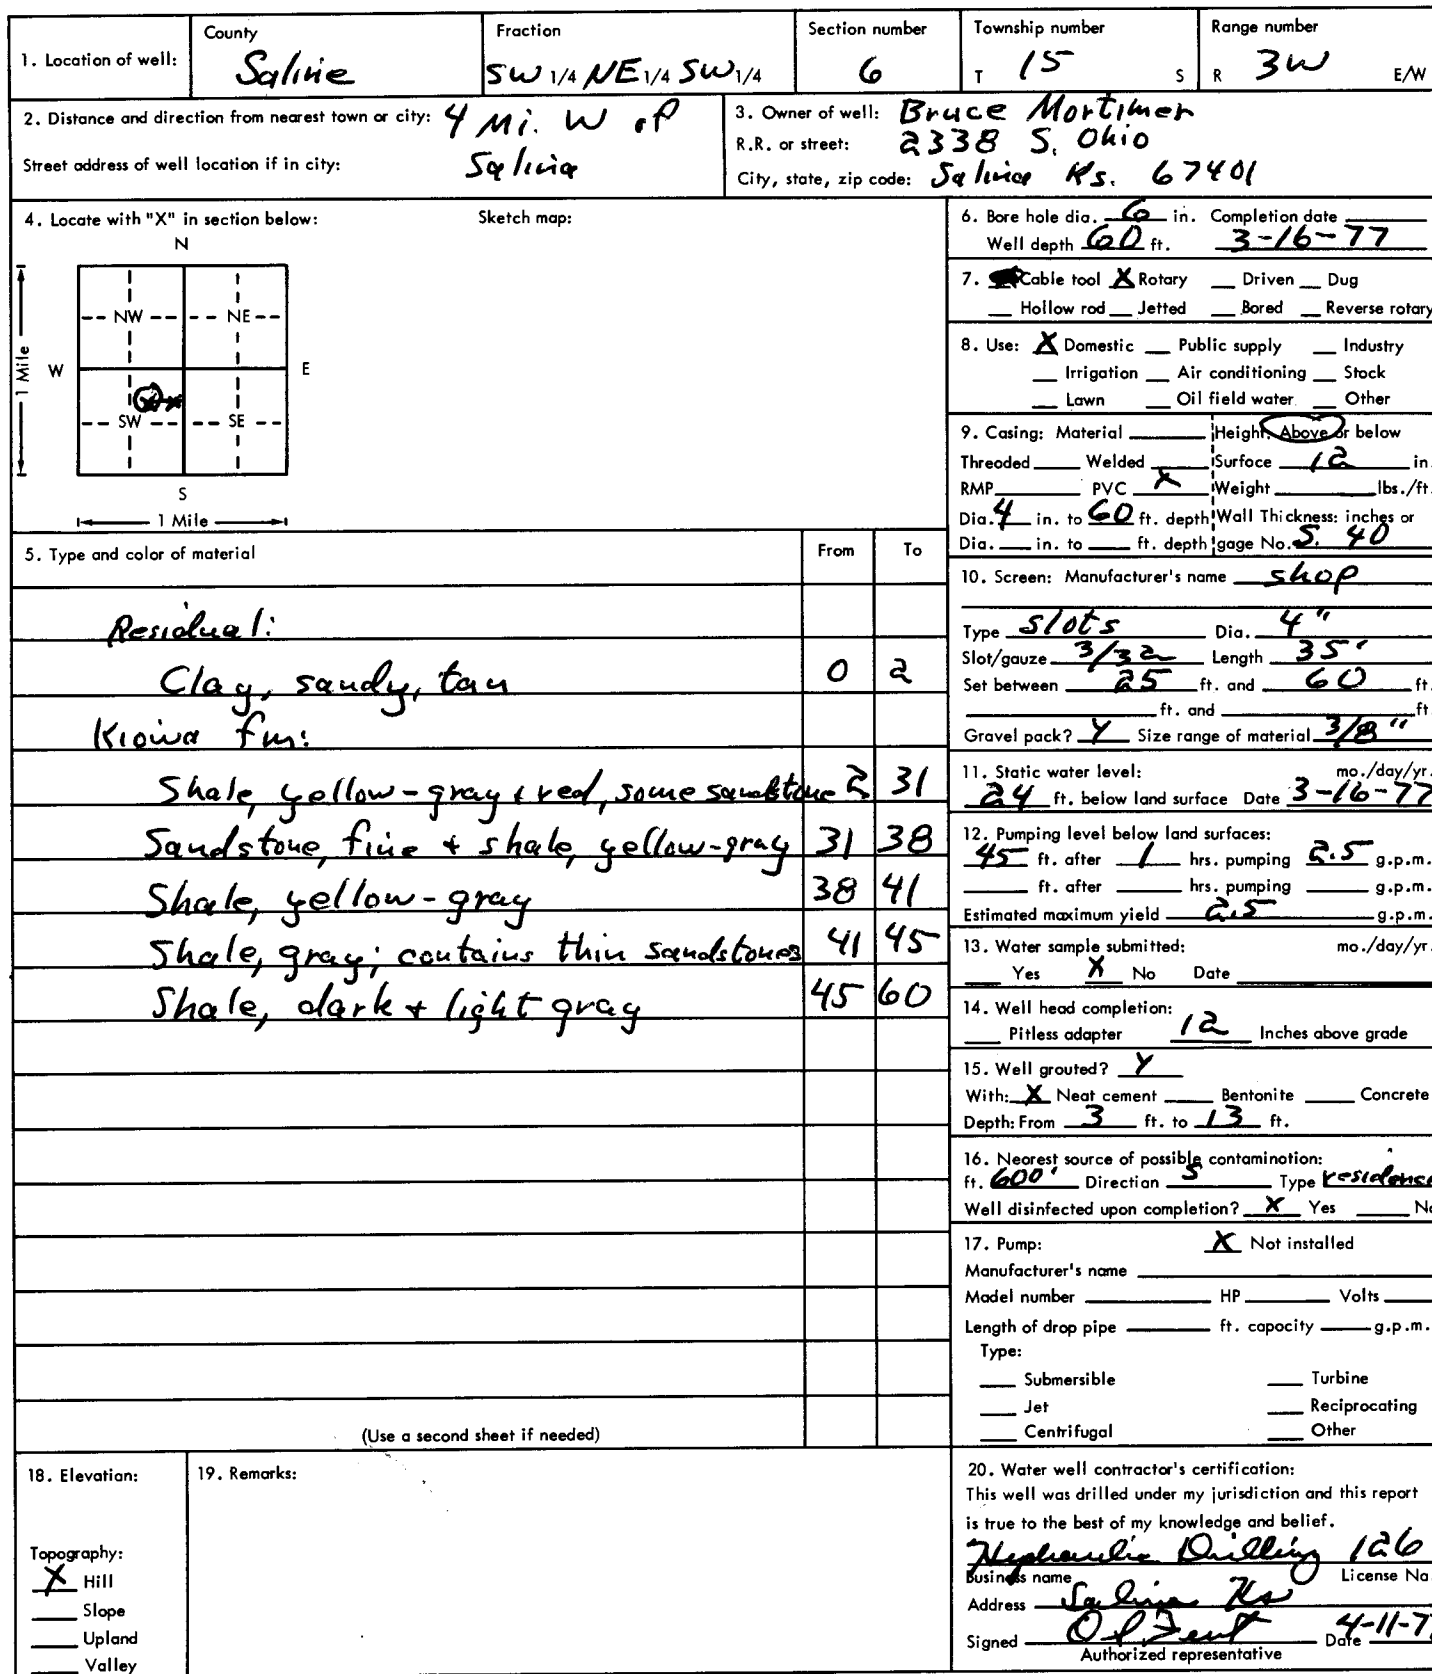 1. Location of well: County Saline Fraction SW 1/4 NE 1/4 SW 1/4 Section number 6 Township number T 15 S Range number R 3W E/W
2. Distance and direction from nearest town or city: 4 Mi. W of
Street address of well location if in city: Salina
3. Owner of well: Bruce Mortimer
R.R. or street: 2338 S. Ohio
City, state, zip code: Salina Ks. 67401
4. Locate with "X" in section below: Sketch map:
N
NW NE
W E
1 Mile
X X
SW SE
S
1 Mile
5. Type and color of material From To
Residual:
Clay, sandy, tan 0 2
Kiowa fm:
Shale, yellow-gray + red, some sandstone 2 31
Sandstone, fine + shale, yellow-gray 31 38
Shale, yellow-gray 38 41
Shale, gray; contains thin sandstones 41 45
Shale, dark + light gray 45 60
(Use a second sheet if needed)
6. Bore hole dia. 6 in. Completion date
Well depth 60 ft. 3-16-77
7. Cable tool X Rotary Driven Dug
Hollow rod Jetted Bored Reverse rotary
8. Use: X Domestic Public supply Industry
Irrigation Air conditioning Stock
Lawn Oil field water Other
9. Casing: Material Height: Above or below
Threaded Welded Surface 12 in.
RMP PVC X Weight lbs./ft.
Dia. 4 in. to 60 ft. depth Wall Thickness: inches or
Dia. in. to ft. depth gage No. S. 40
10. Screen: Manufacturer's name shop
Type slots Dia. 4"
Slot/gauze 3/32 Length 35'
Set between 25 ft. and 60 ft.
ft. and ft.
Gravel pack? Y Size range of material 3/8"
11. Static water level: mo./day/yr.
24 ft. below land surface Date 3-16-77
12. Pumping level below land surfaces:
45 ft. after 1 hrs. pumping 2.5 g.p.m.
ft. after hrs. pumping g.p.m.
Estimated maximum yield 2.5 g.p.m.
13. Water sample submitted: mo./day/yr.
Yes X No Date
14. Well head completion:
Pitless adapter 12 Inches above grade
15. Well grouted? Y
With: X Neat cement Bentonite Concrete
Depth: From 3 ft. to 13 ft.
16. Nearest source of possible contamination:
ft. 600' Direction S Type residence
Well disinfected upon completion? X Yes No
17. Pump: X Not installed
Manufacturer's name
Model number HP Volts
Length of drop pipe ft. capacity g.p.m.
Type:
Submersible Turbine
Jet Reciprocating
Centrifugal Other
18. Elevation:
Topography:
X Hill
Slope
Upland
Valley
19. Remarks:
20. Water well contractor's certification:
This well was drilled under my jurisdiction and this report
is true to the best of my knowledge and belief.
Drilling 126
Business name License No
Address Salina Ks
Signed Date 4-11-7
Authorized representative